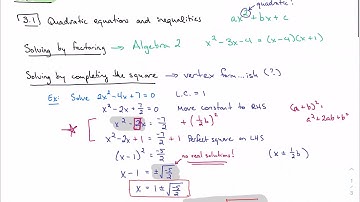 3.1 Quadratic equations and inequalities
quadratic!
ax² + bx + c
Solving by factoring → Algebra 2
x² - 3x - 4 = (x-4)(x+1)
Solving by completing the square → vertex form...ish (?)
Ex: Solve 2x² - 4x + 7 = 0 L.C. = 1
x² - 2x + 7/2 = 0 Move constant to RHS
(a+b)² =
a² + 2ab + b²
x² - 2x = -7/2 + (½b)²
x² - 2x + 1 = -7/2 + 1 Perfect square on LHS
(x-1)² = -5/2
no real solutions!
(x ± ½b)
x - 1 = ±√-5/2
x = 1 ± √-5/2